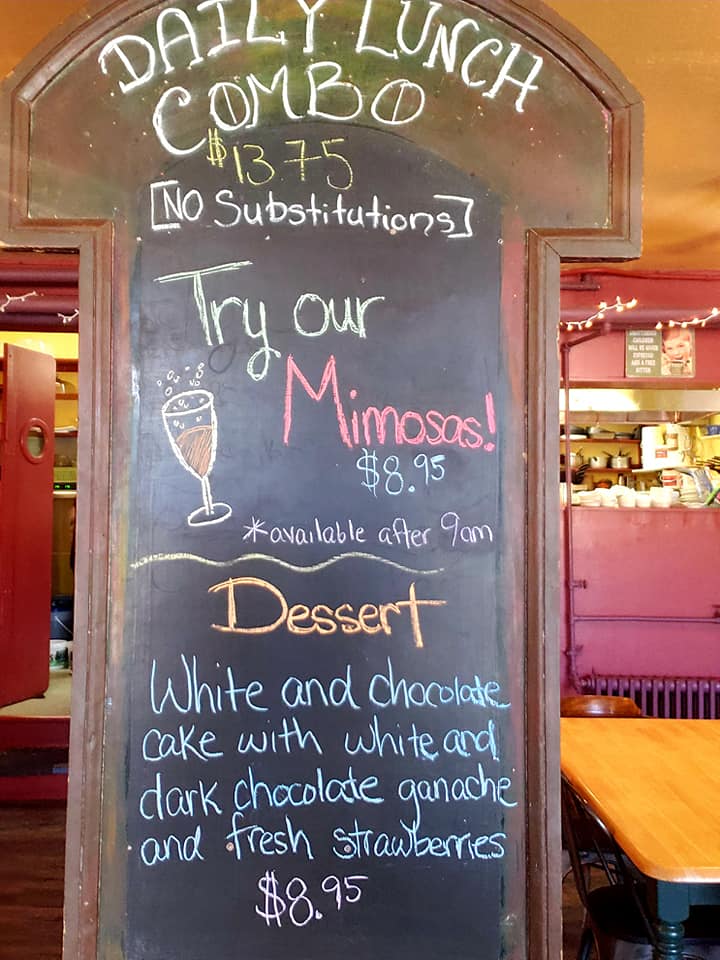 DAILY LUNCH
COMBO
$13.75
[NO Substitutions]
Try our
Mimosas!
$8.95
*available after 9am
Dessert
White and chocolate
cake with white and
dark chocolate ganache
and fresh strawberries
$8.95
UNATTENDED
CHILDREN
WILL BE GIVEN
ESPRESSO
AND A FREE
KITTEN